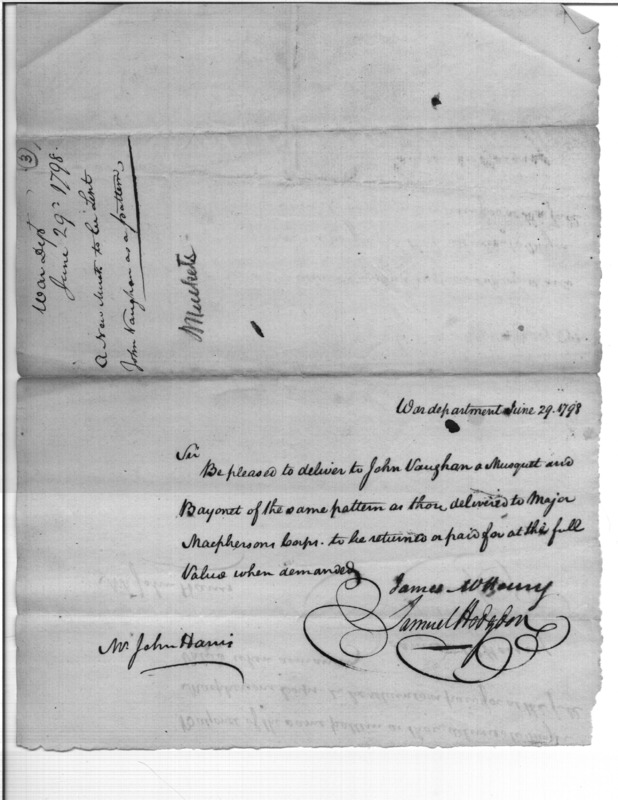 (3)
War Dept
June 29th 1798.
A New Muskt to be Lent
John Vaughan as a pattern
Muskets
War department June 29. 1798
Sir
Be pleased to deliver to John Vaughan a Musquet and
Bayonet of the same pattern as those delivered to Major
Macphersons Corps. to be returned or paid for at the full
Value when demanded
James McHenry
Samuel Hodgdon
Mr John Harris